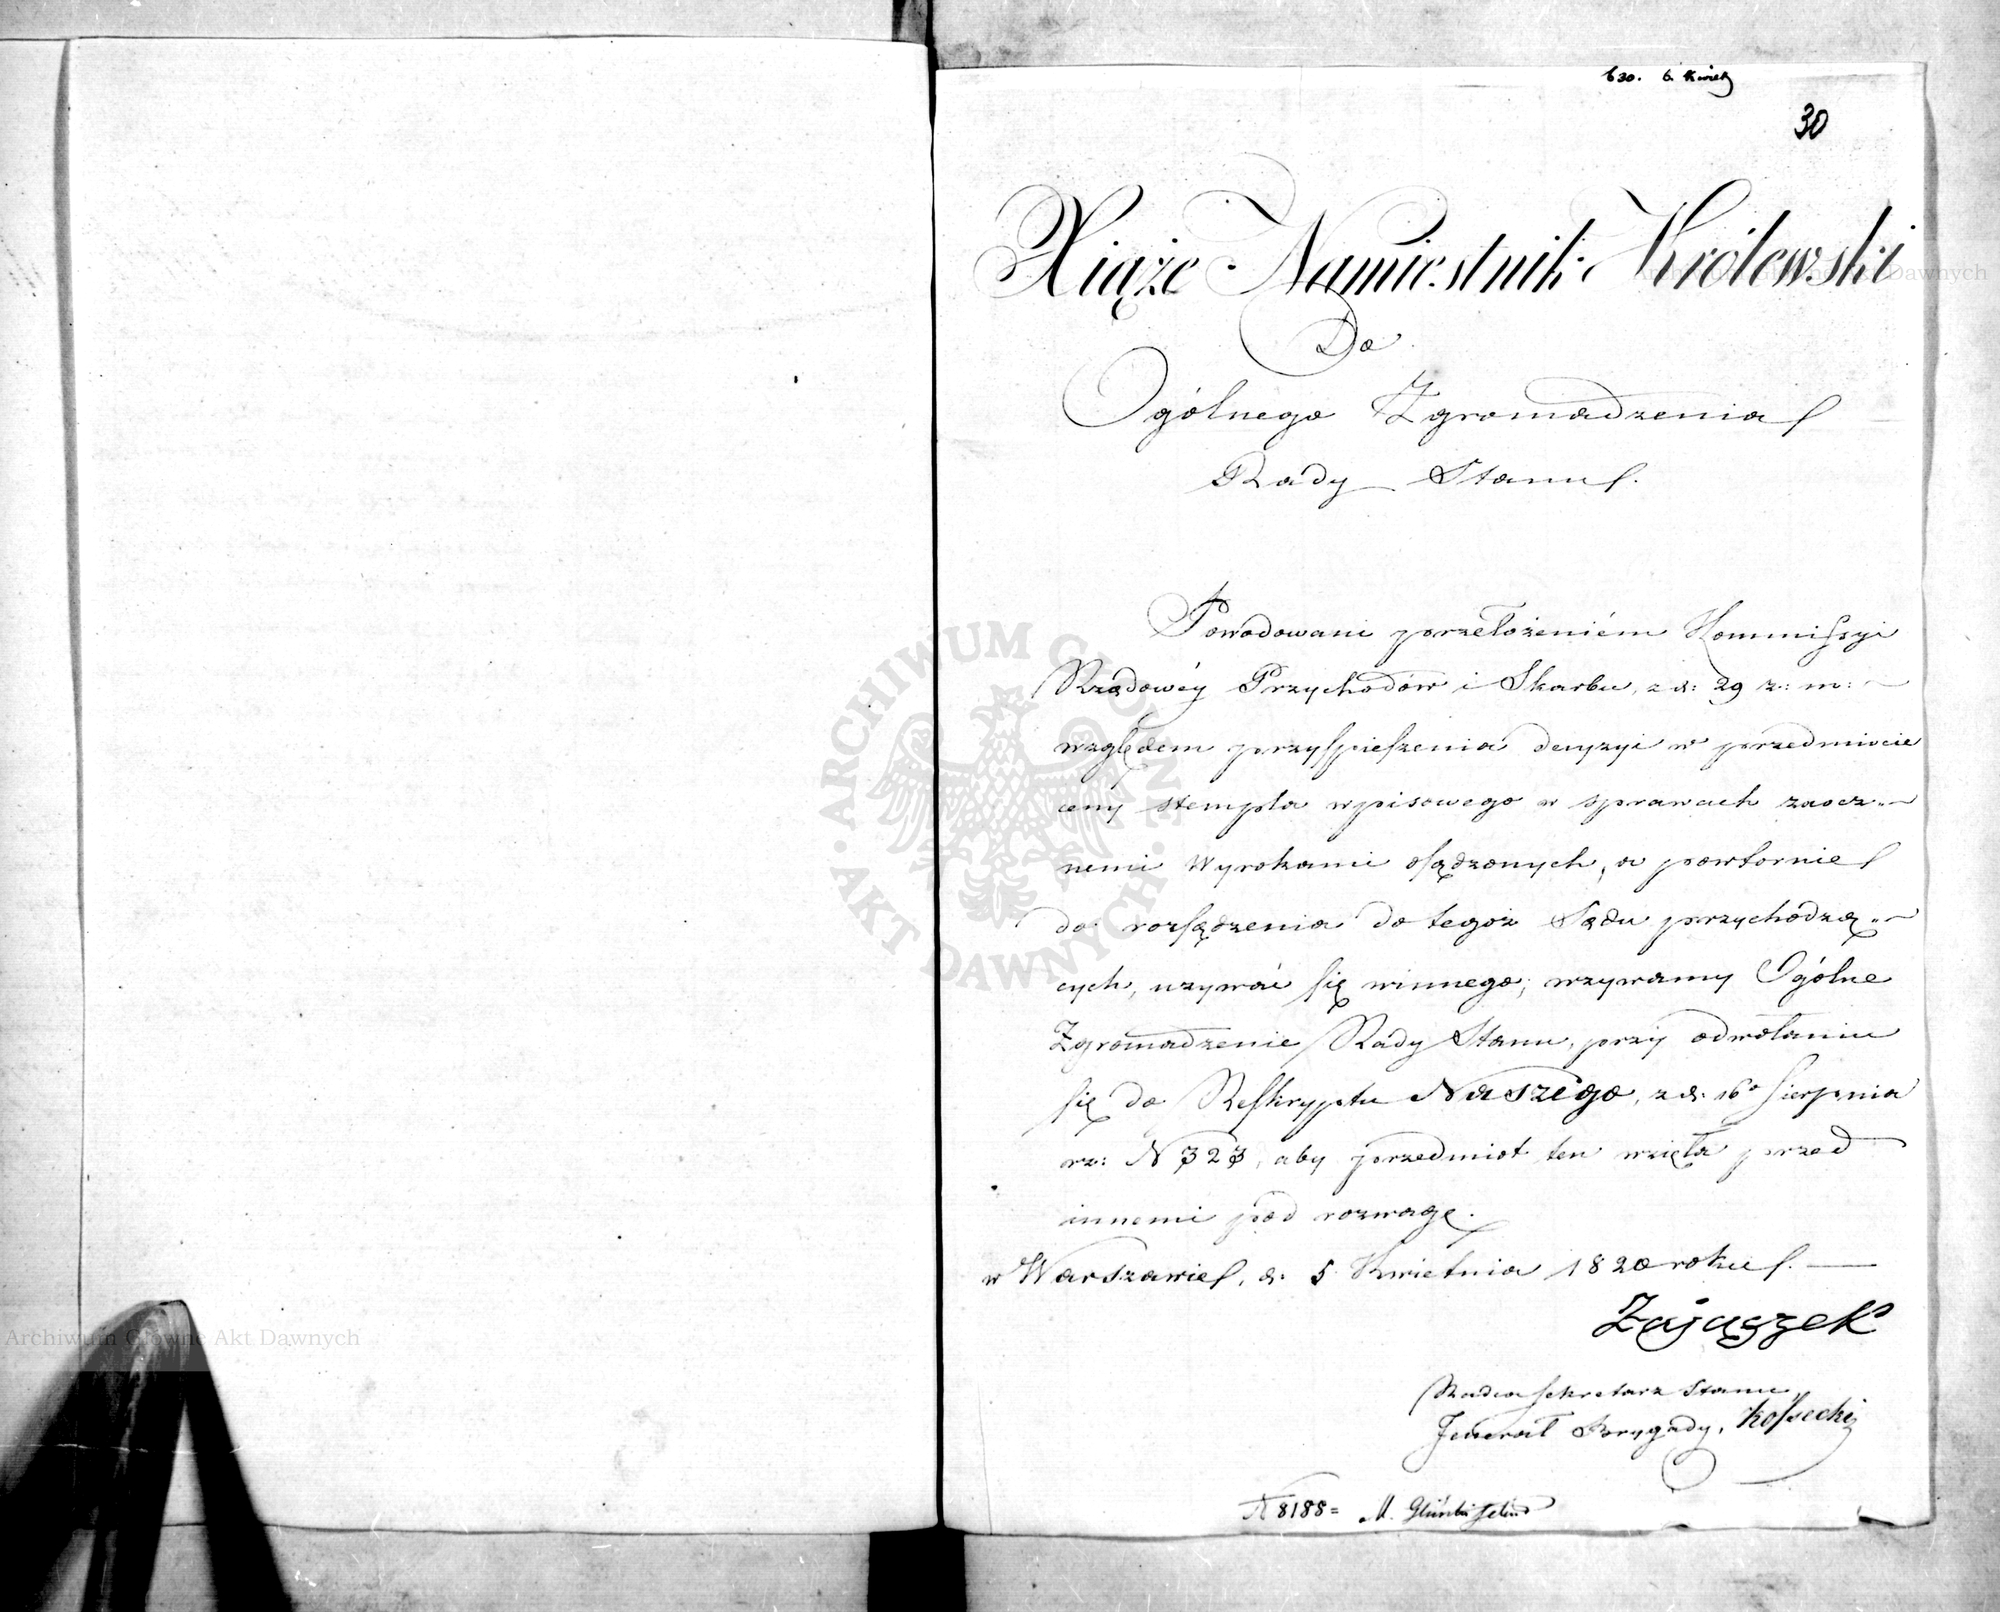 630. 6. Kwiet
30
Xiąże Namiestnik Królewski
Do
Ogólnego Zgromadzenia
Rady Stanu.
Powodowani przełożeniém Kommissyi
Rządowéy Przychodów i Skarbu, z d: 29 z: m:
względem przyspieszenia decyzyi w przedmiocie
ceny stempla wpisowego w sprawach zaocz-
nemi Wyrokami osądzonych, a powtornie
do rozsądzenia do tegoż Sądu przychodzą-
cych, używać się winnego; wzywamy Ogólne
Zgromadzenie Rady Stanu, przy odwołaniu
się do Reskryptu Naszego, z d: 16o Sierpnia
rz: N 323, aby przedmiot ten wzięła przed
innemi pod rozwagę.
w Warszawie, d: 5 Kwietnia 1820 roku.
Zajączek
Radca Sekretarz Stanu,
Jenerał Brygady, Kossecki
N 8188 =
ARCHIWUM GŁÓWNE AKT DAWNYCH
Archiwum Główne Akt Dawnych
Archiwum Główne Akt Dawnych